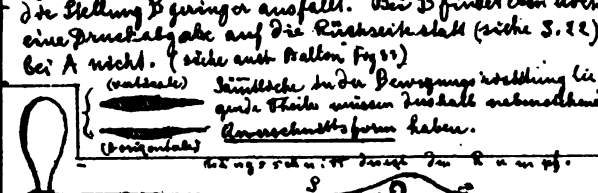 die Stellung B geringer ausfällt. Bei B findet dem
eine Druckabgabe auf die Rückseite statt (siehe S. 22)
bei A nicht. (siehe auch Ballon Fig 33)
(vertikale) Sämtliche in der Bewegungsrichtung lie
gende Theile müssen deshalb
Querschnittsform haben.
(horizontale)
Längsschnitt durch den Rumpf.